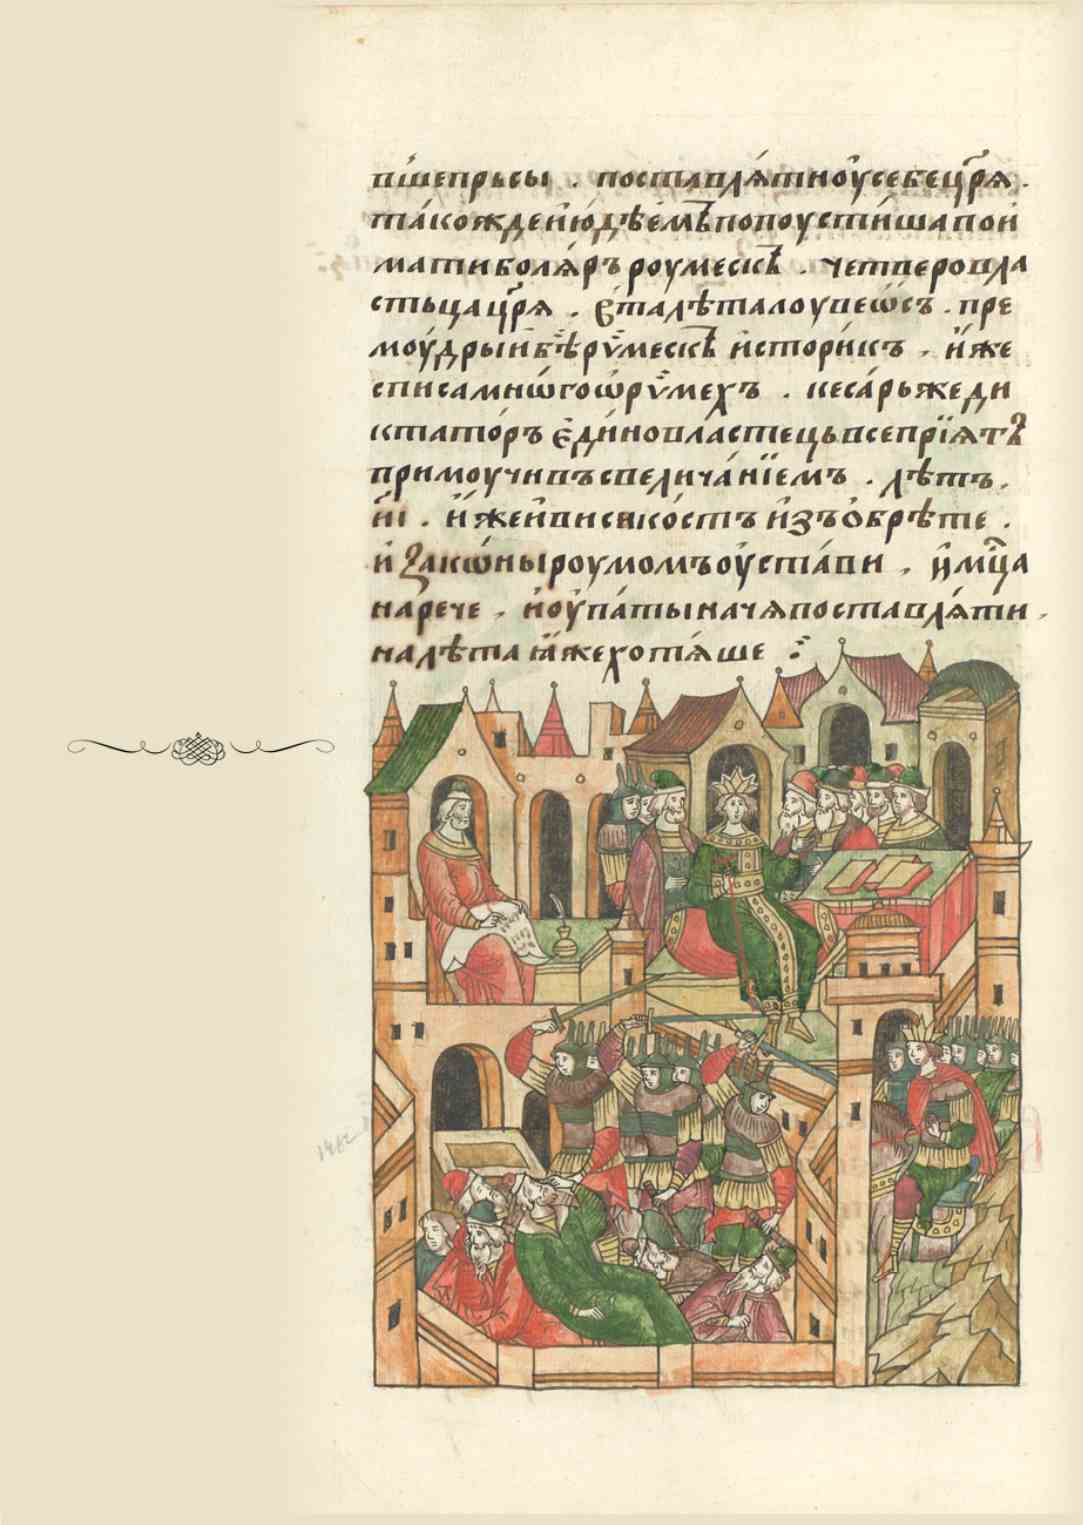 вшепрьсы . поставлѧ́тиоу҆себецр҃ѧ .
та́кожденїю҆дѣемъ҃попоусти́шапои
матиболѧ́ръроумескї . четверовла
стьцацр҃ѧ . є҆талѣталоувеѡ҆съ . пре
моу́дрыибѣ̀рѵ́мескї и҆стори́къ . и҆́же
списамнѡ́гоѡ҆рѵ́мехъ . кеса́рьжеди
ктато́ръ є҆ди́новла́стецьвсепрїѧтꙁ
примоучивъсвелича́нїемъ . лѣтъ .
и҃і . и҆́жеи҆висикостъ и҆зъѡ҆брѣте .
и҆ ꙁакѡ́ныроумомъоу҆ста́ви , и҆мц҃а
нарече , и҆оу҆па́тыначѧпоставлѧ́ти ,
налѣта ꙗ҆́жехотѧ́ше ჻